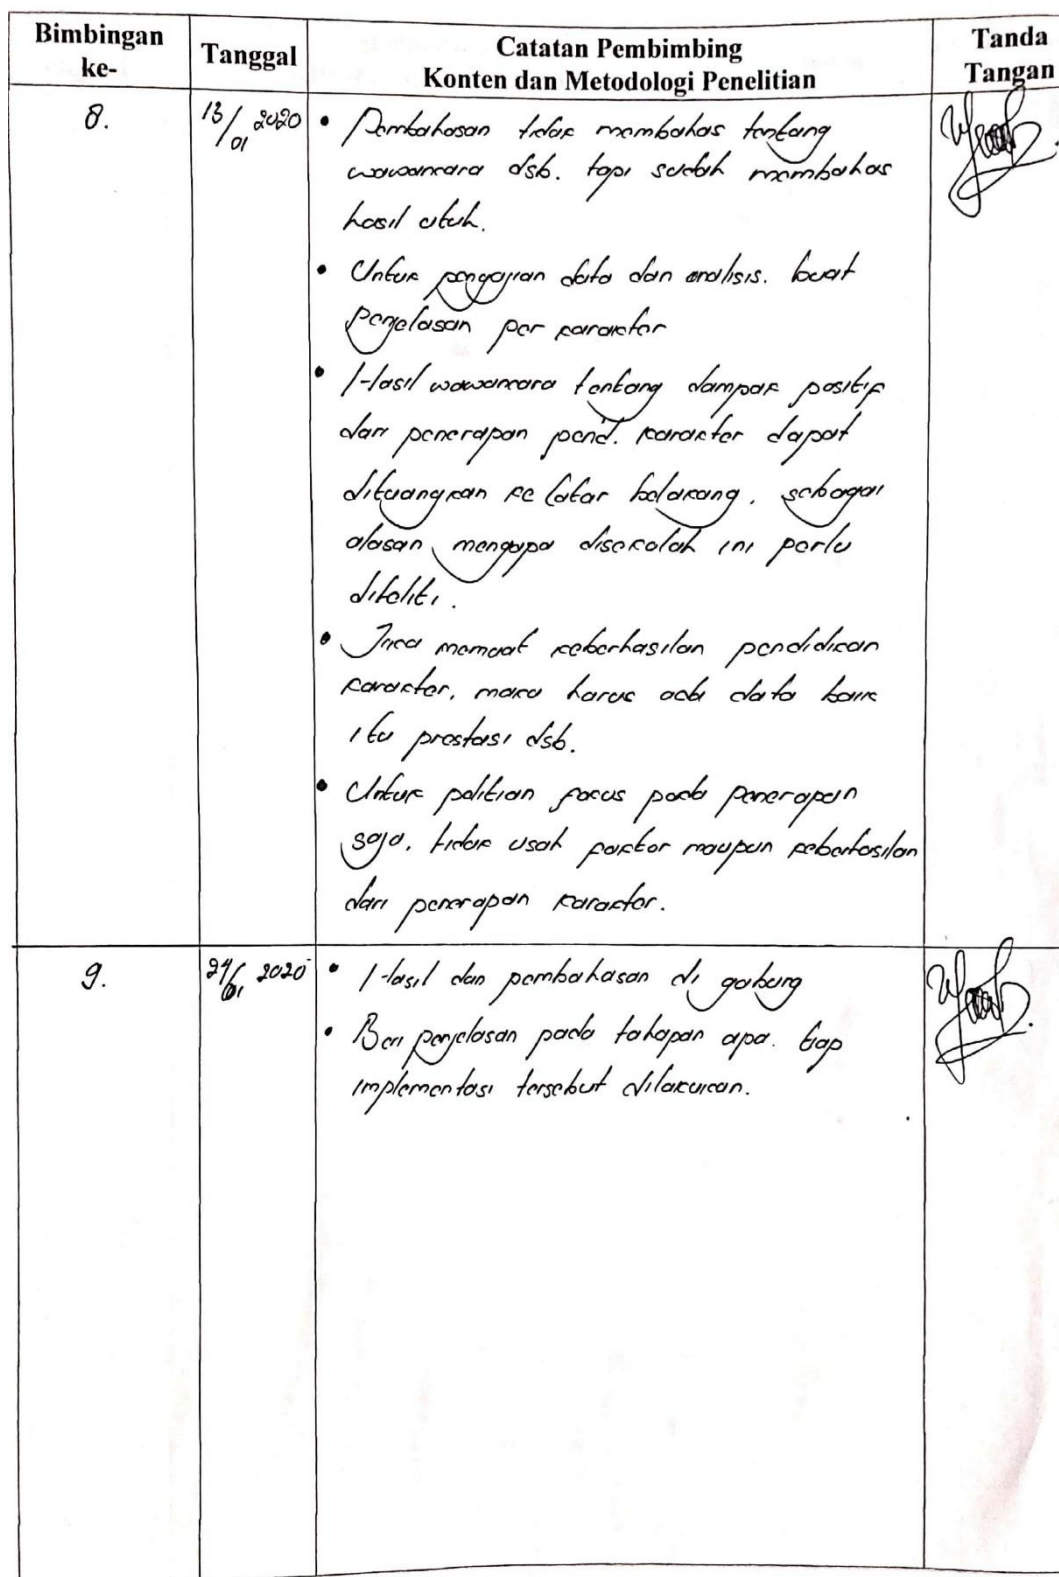 Bimbingan ke-
Tanggal
Catatan Pembimbing
Konten dan Metodologi Penelitian
Tanda Tangan
8.
13/01 2020
• Pembahasan tidak membahas tentang
wawancara dsb. tapi sudah membahas
hasil utuh.
• Untuk pengajian data dan analisis. buat
penjelasan per karakter
• Hasil wawancara tentang dampak positif
dari penerapan pend. karakter dapat
dituangkan ke latar belakang, sebagai
alasan mengapa disekolah ini perlu
diteliti.
• Jika memuat keberhasilan pendidikan
karakter, maka harus ada data baik
itu prestasi dsb.
• Untuk politian fokus pada penerapan
saja, tidak usah faktor maupun keberhasilan
dari penerapan karakter.
9.
24/01 2020
• Hasil dan pembahasan di gabung
• Beri penjelasan pada tahapan apa. tiap
implementasi tersebut dilakukan.